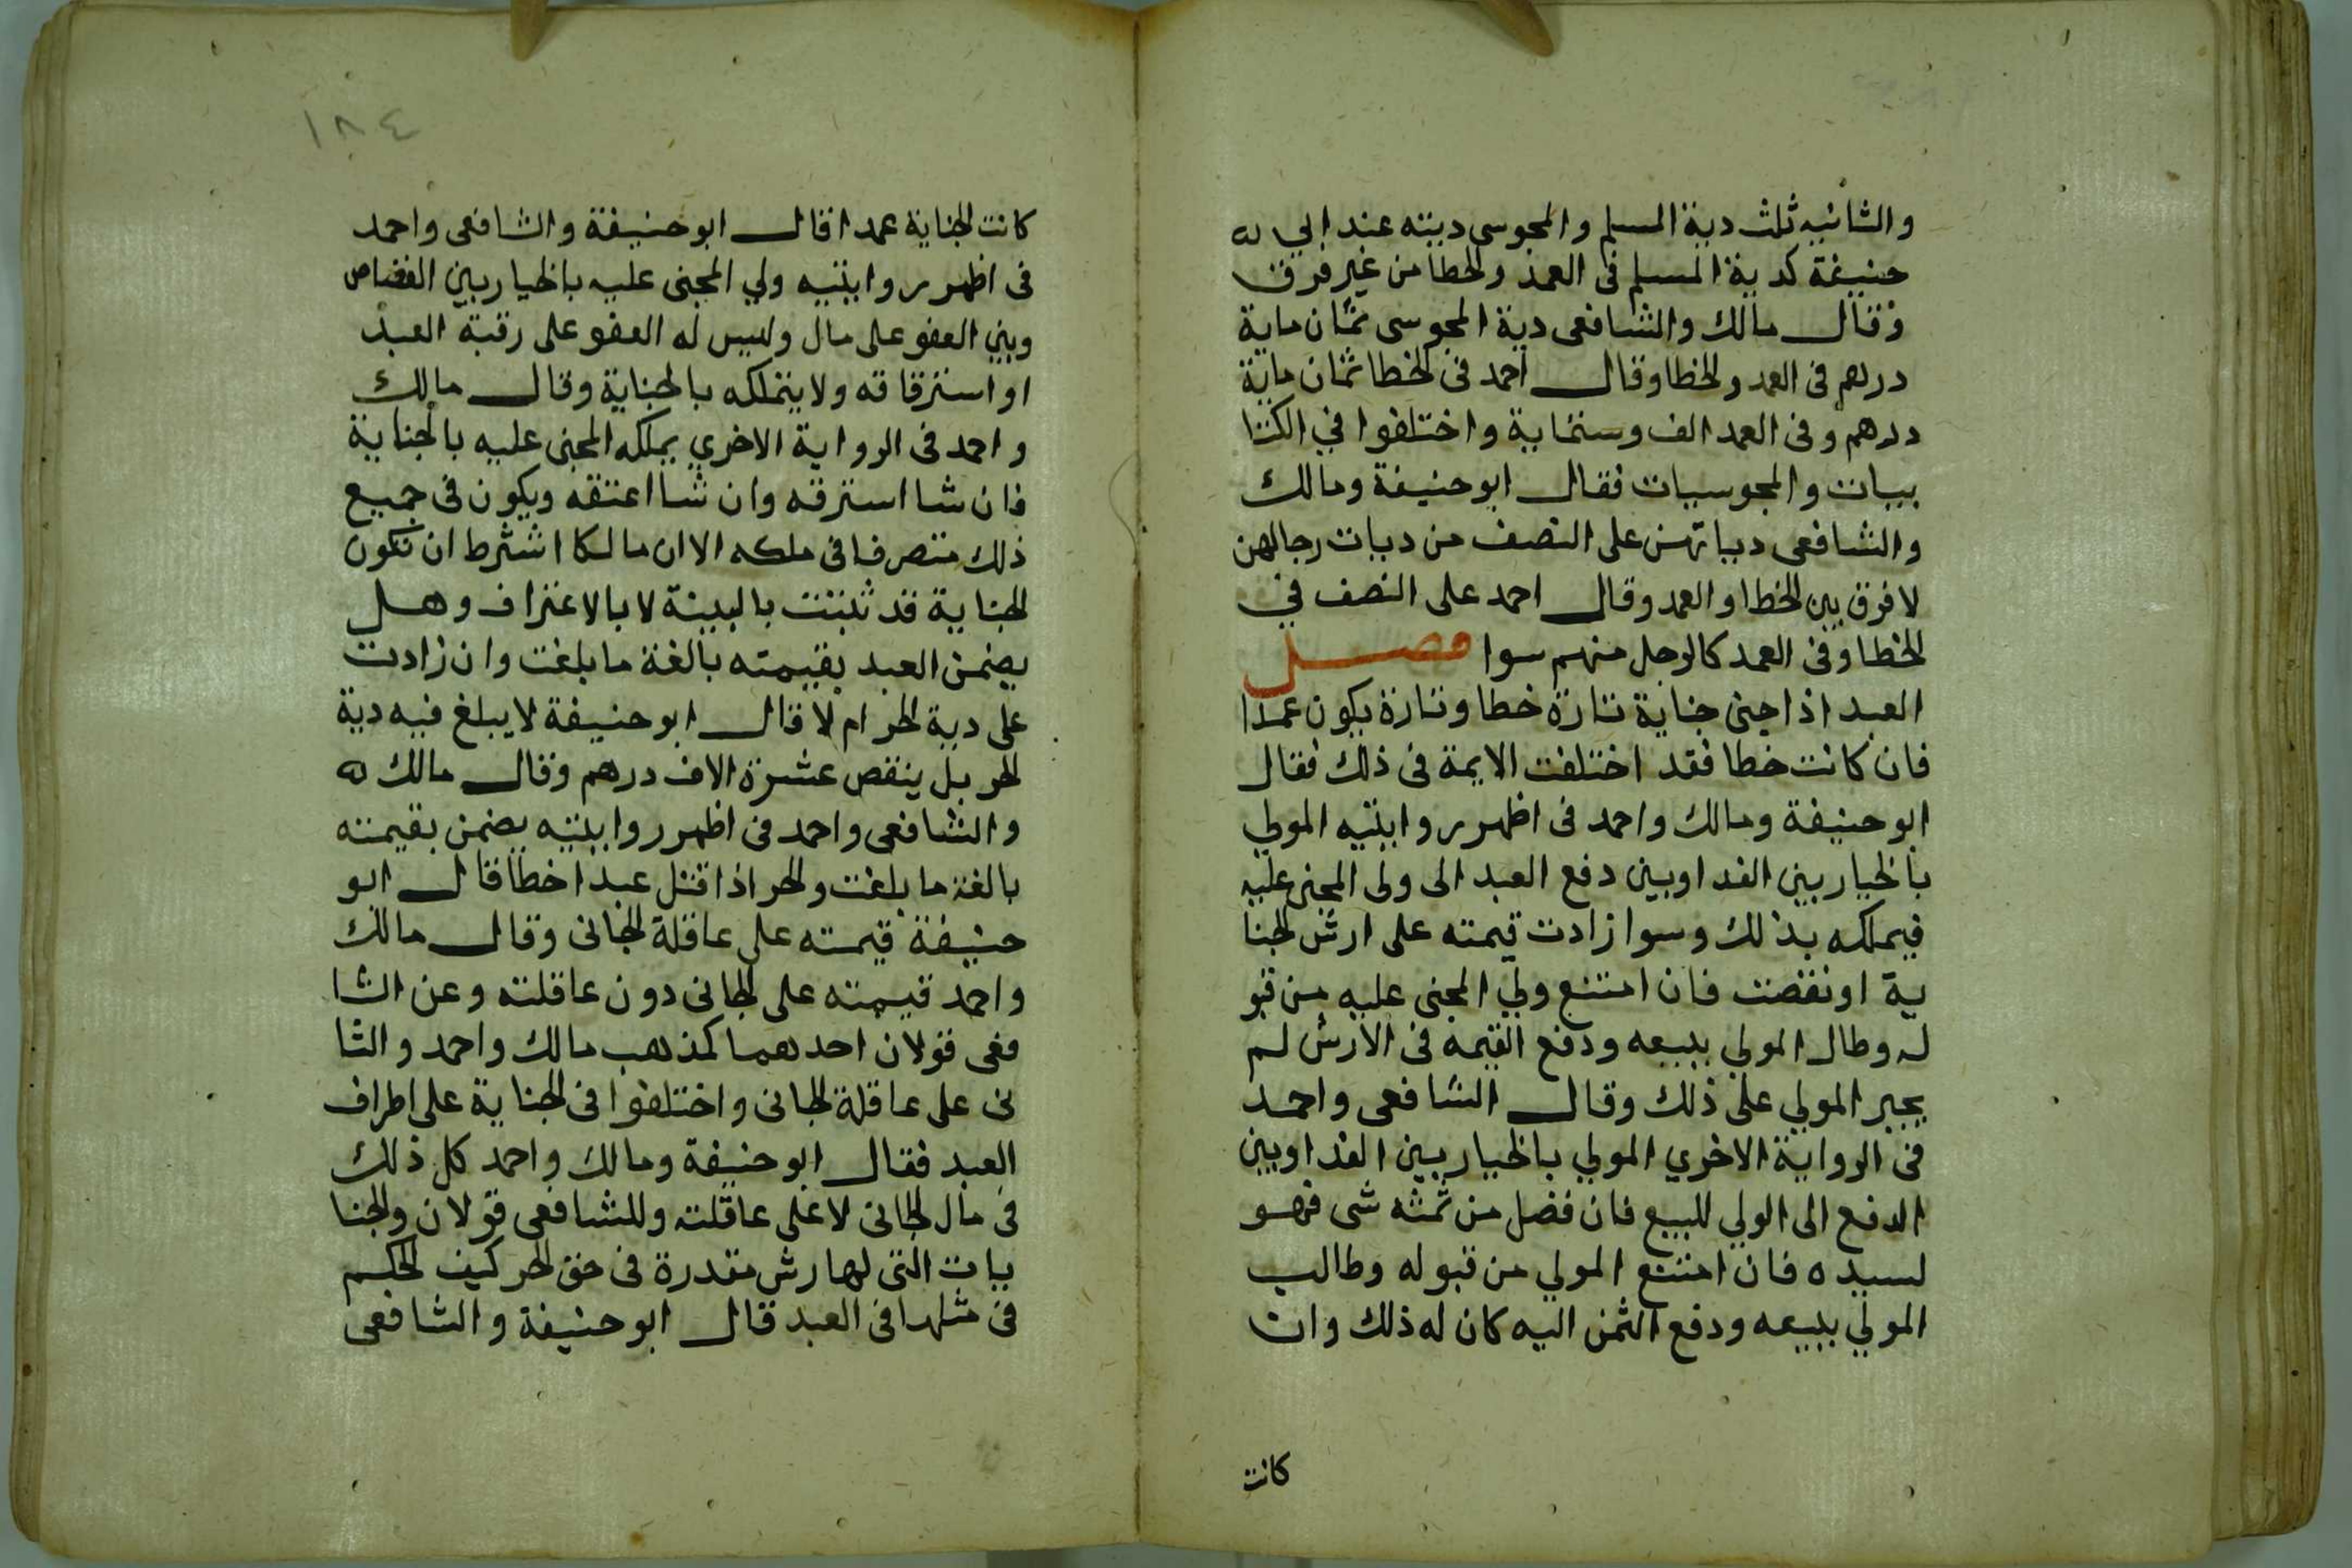 والثانيه ثلث دية المسلم والمجوسى ديته عند ابي
حنيفة كدية المسلم فى العمد والخطا من غير فرق
وقال مالك والشافعى دية المجوسى ثمان ماية
درهم فى العمد والخطا وقال احمد فى الخطا ثمان ماية
درهم وفى العمد الف وستماية واختلفوا في الكتا
بيات والمجوسيات فقال ابو حنيفة ومالك
والشافعى دياتهن على النصف من ديات رجالهن
لا فرق بين الخطا والعمد وقال احمد على النصف في
الخطا وفى العمد كالرجل منهم سوا فصل
العبد اذا جنى جناية تارة خطا وتارة يكون عمدا
فان كانت خطا فقد اختلفت الايمة فى ذلك فقال
ابو حنيفة ومالك واحمد فى اظهر روايتيه المولي
بالخيار بين الفدا وبين دفع العبد الى ولى المجنى عليه
فيملكه بذلك وسوا زادت قيمته على ارش الجنا
ية او نقصت فان امتنع ولي المجنى عليه من قبو
له وطال المولي ببيعه ودفع القيمة فى الارش لم
يجبر المولي على ذلك وقال الشافعى واحمد
فى الرواية الاخري المولي بالخيار بين الفدا وبين
الدفع الى الولي للبيع فان فضل من ثمنه شى فهو
لسيده فان امتنع المولي من قبوله وطالب
المولي ببيعه ودفع الثمن اليه كان له ذلك وان
كانت
١٨٤
كانت الجناية عمدا قال ابو حنيفة والشافعى واحمد
فى اظهر روايتيه ولي المجنى عليه بالخيار بين القصاص
وبين العفو على مال وليس له العفو على رقبة العبد
او استرقاقه ولا يتملكه بالجناية وقال مالك
واحمد فى الرواية الاخري يملكه المجنى عليه بالجناية
فان شا استرقه وان شا اعتقه ويكون فى جميع
ذلك متصرفا فى ملكه الا ان مالكا اشترط ان تكون
الجناية قد ثبتت بالبينة لا بالاعتراف وهل
يضمن العبد بقيمته بالغة ما بلغت وان زادت
على دية الحر ام لا قال ابو حنيفة لا يبلغ فيه دية
الحر بل ينقص عشرة الاف درهم وقال مالك
والشافعى واحمد فى اظهر روايتيه يضمن بقيمته
بالغة ما بلغت والحر اذا قتل عبدا خطا قال ابو
حنيفة قيمته على عاقلة الجانى وقال مالك
واحمد قيمته على الجانى دون عاقلته وعن الشا
فعى قولان احدهما كمذهب مالك واحمد والثا
نى على عاقلة الجانى واختلفوا فى الجناية على اطراف
العبد فقال ابو حنيفة ومالك واحمد كل ذلك
فى مال الجانى لا على عاقلته وللشافعى قولان والجنا
يات التى لها رش مقدرة فى حق الحر كيف الحكم
فى مثلها فى العبد قال ابو حنيفة والشافعى